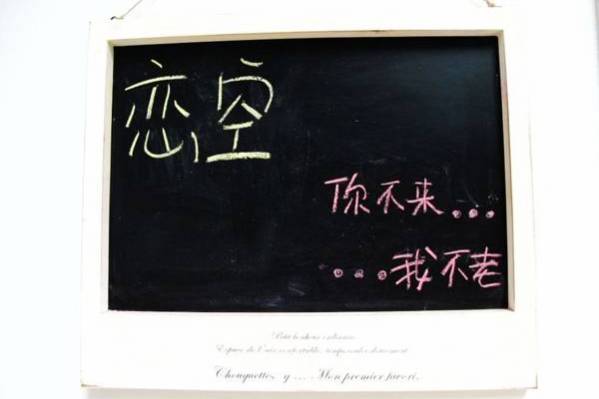 恋空
你不来...
...我不老
Chouquettes y ... Mon premier favori.